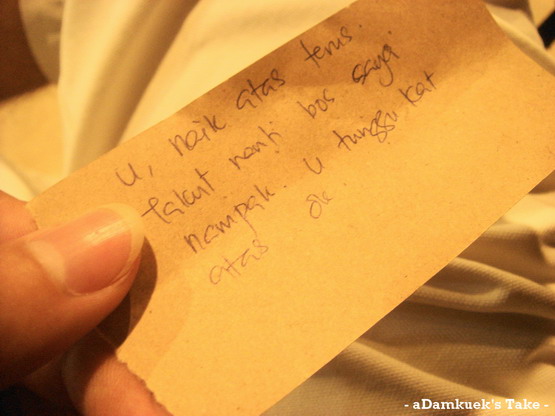 U, naik atas terus.
takut nanti bos saya
nampak. U tunggu kat
atas ok.
- aDamkuek's Take -